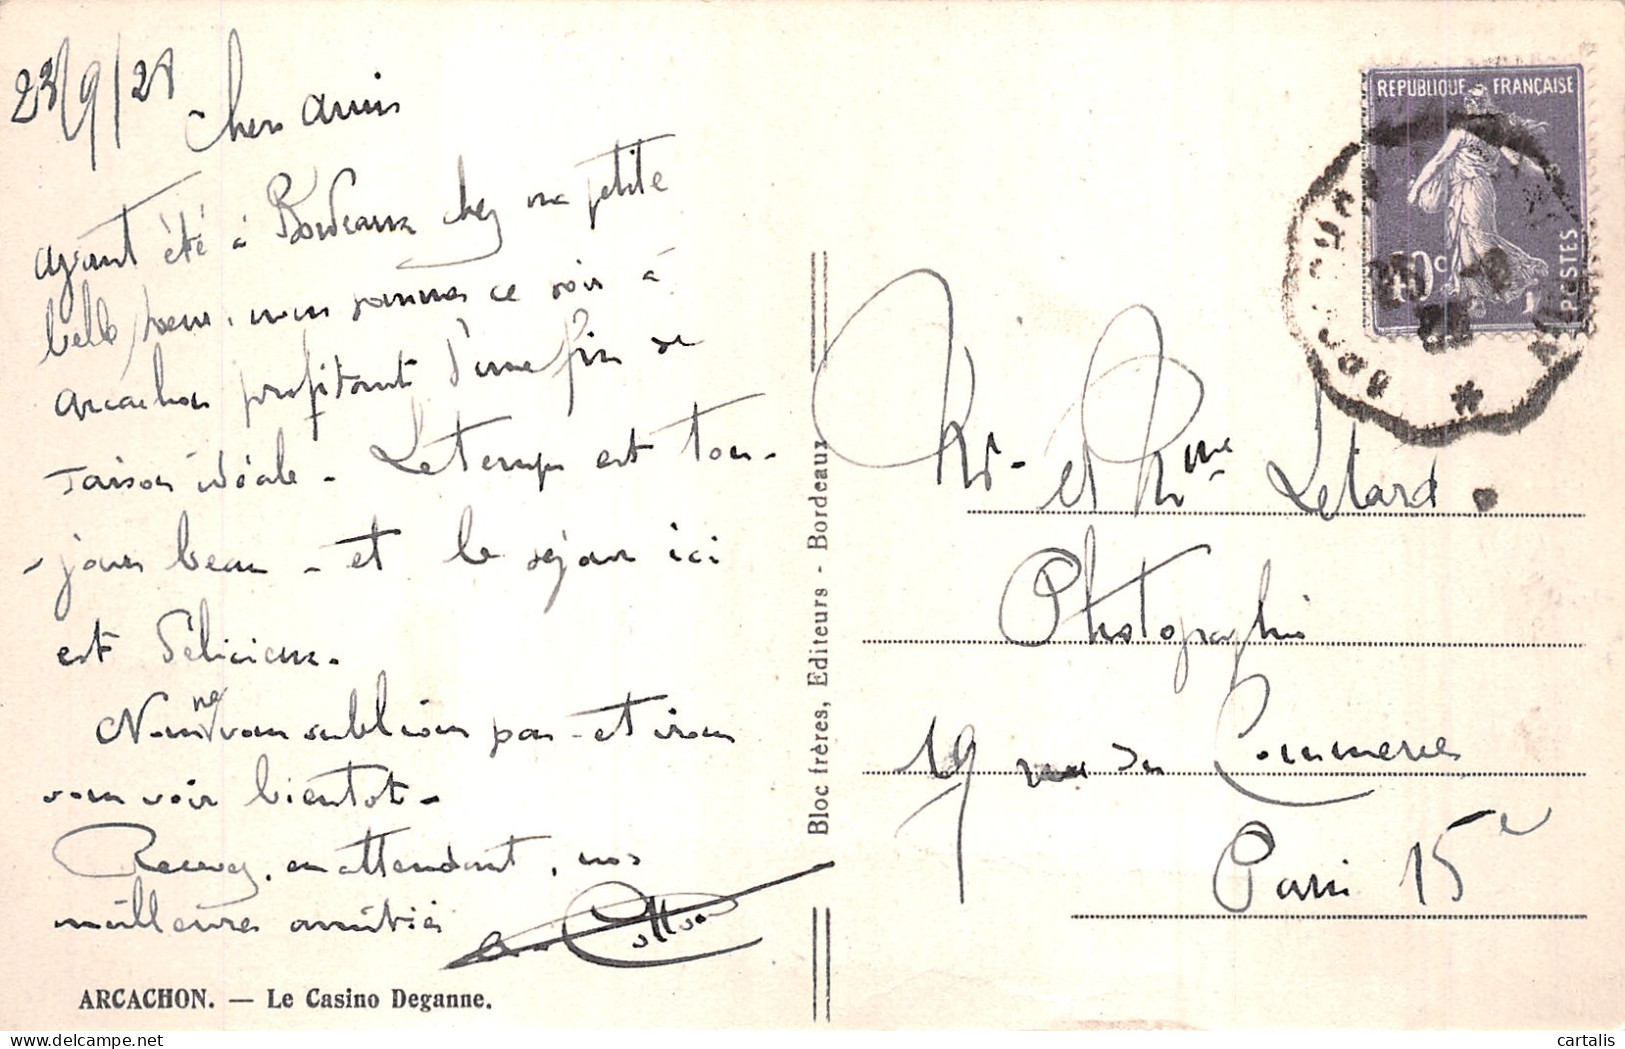 23/9/28
Chers Amis
ayant été à Bordeaux chez ma petite
belle soeur, nous sommes ce soir à
Arcachon profitant d'une fin de
saison idéale - Le temps est tou-
-jours beau - et le séjour ici
est délicieux.
Nous ne vous oublions pas - et irons
vous voir bientôt -
Recevez, en attendant, nos
meilleures amitiés
ARCACHON. — Le Casino Deganne.
Bloc frères, Editeurs - Bordeaux
REPUBLIQUE FRANÇAISE
40c
POSTES
Mr - et Mme Letard.
Photographie
19 rue du Commerce
Paris 15e
cartalis